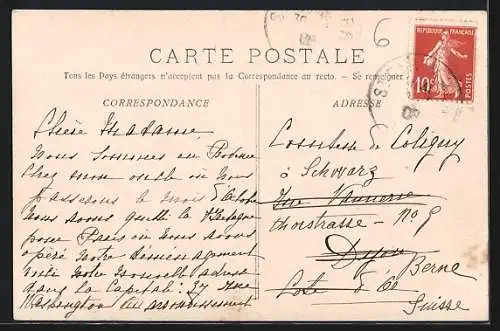 6
RÉPUBLIQUE FRANÇAISE
10c
POSTES
CARTE POSTALE
Tous les Pays étrangers n'acceptent pas la Correspondance au recto. — Se renseigner
CORRESPONDANCE
ADRESSE
Chère Madame
Nous sommes en
chez mon oncle où nous
passerons le mois d'
Nous avons quitté la Bretagne
pour Paris où nous avons
opéré notre déménagement
notre nouvelle adresse
dans la Capitale : 27 rue
Washington arrondissement
Comtesse de Coligny
à Schwarz
Rue Vannerie
thorstrasse - No 5
Dijon
Berne
Côte d'Or
Suisse